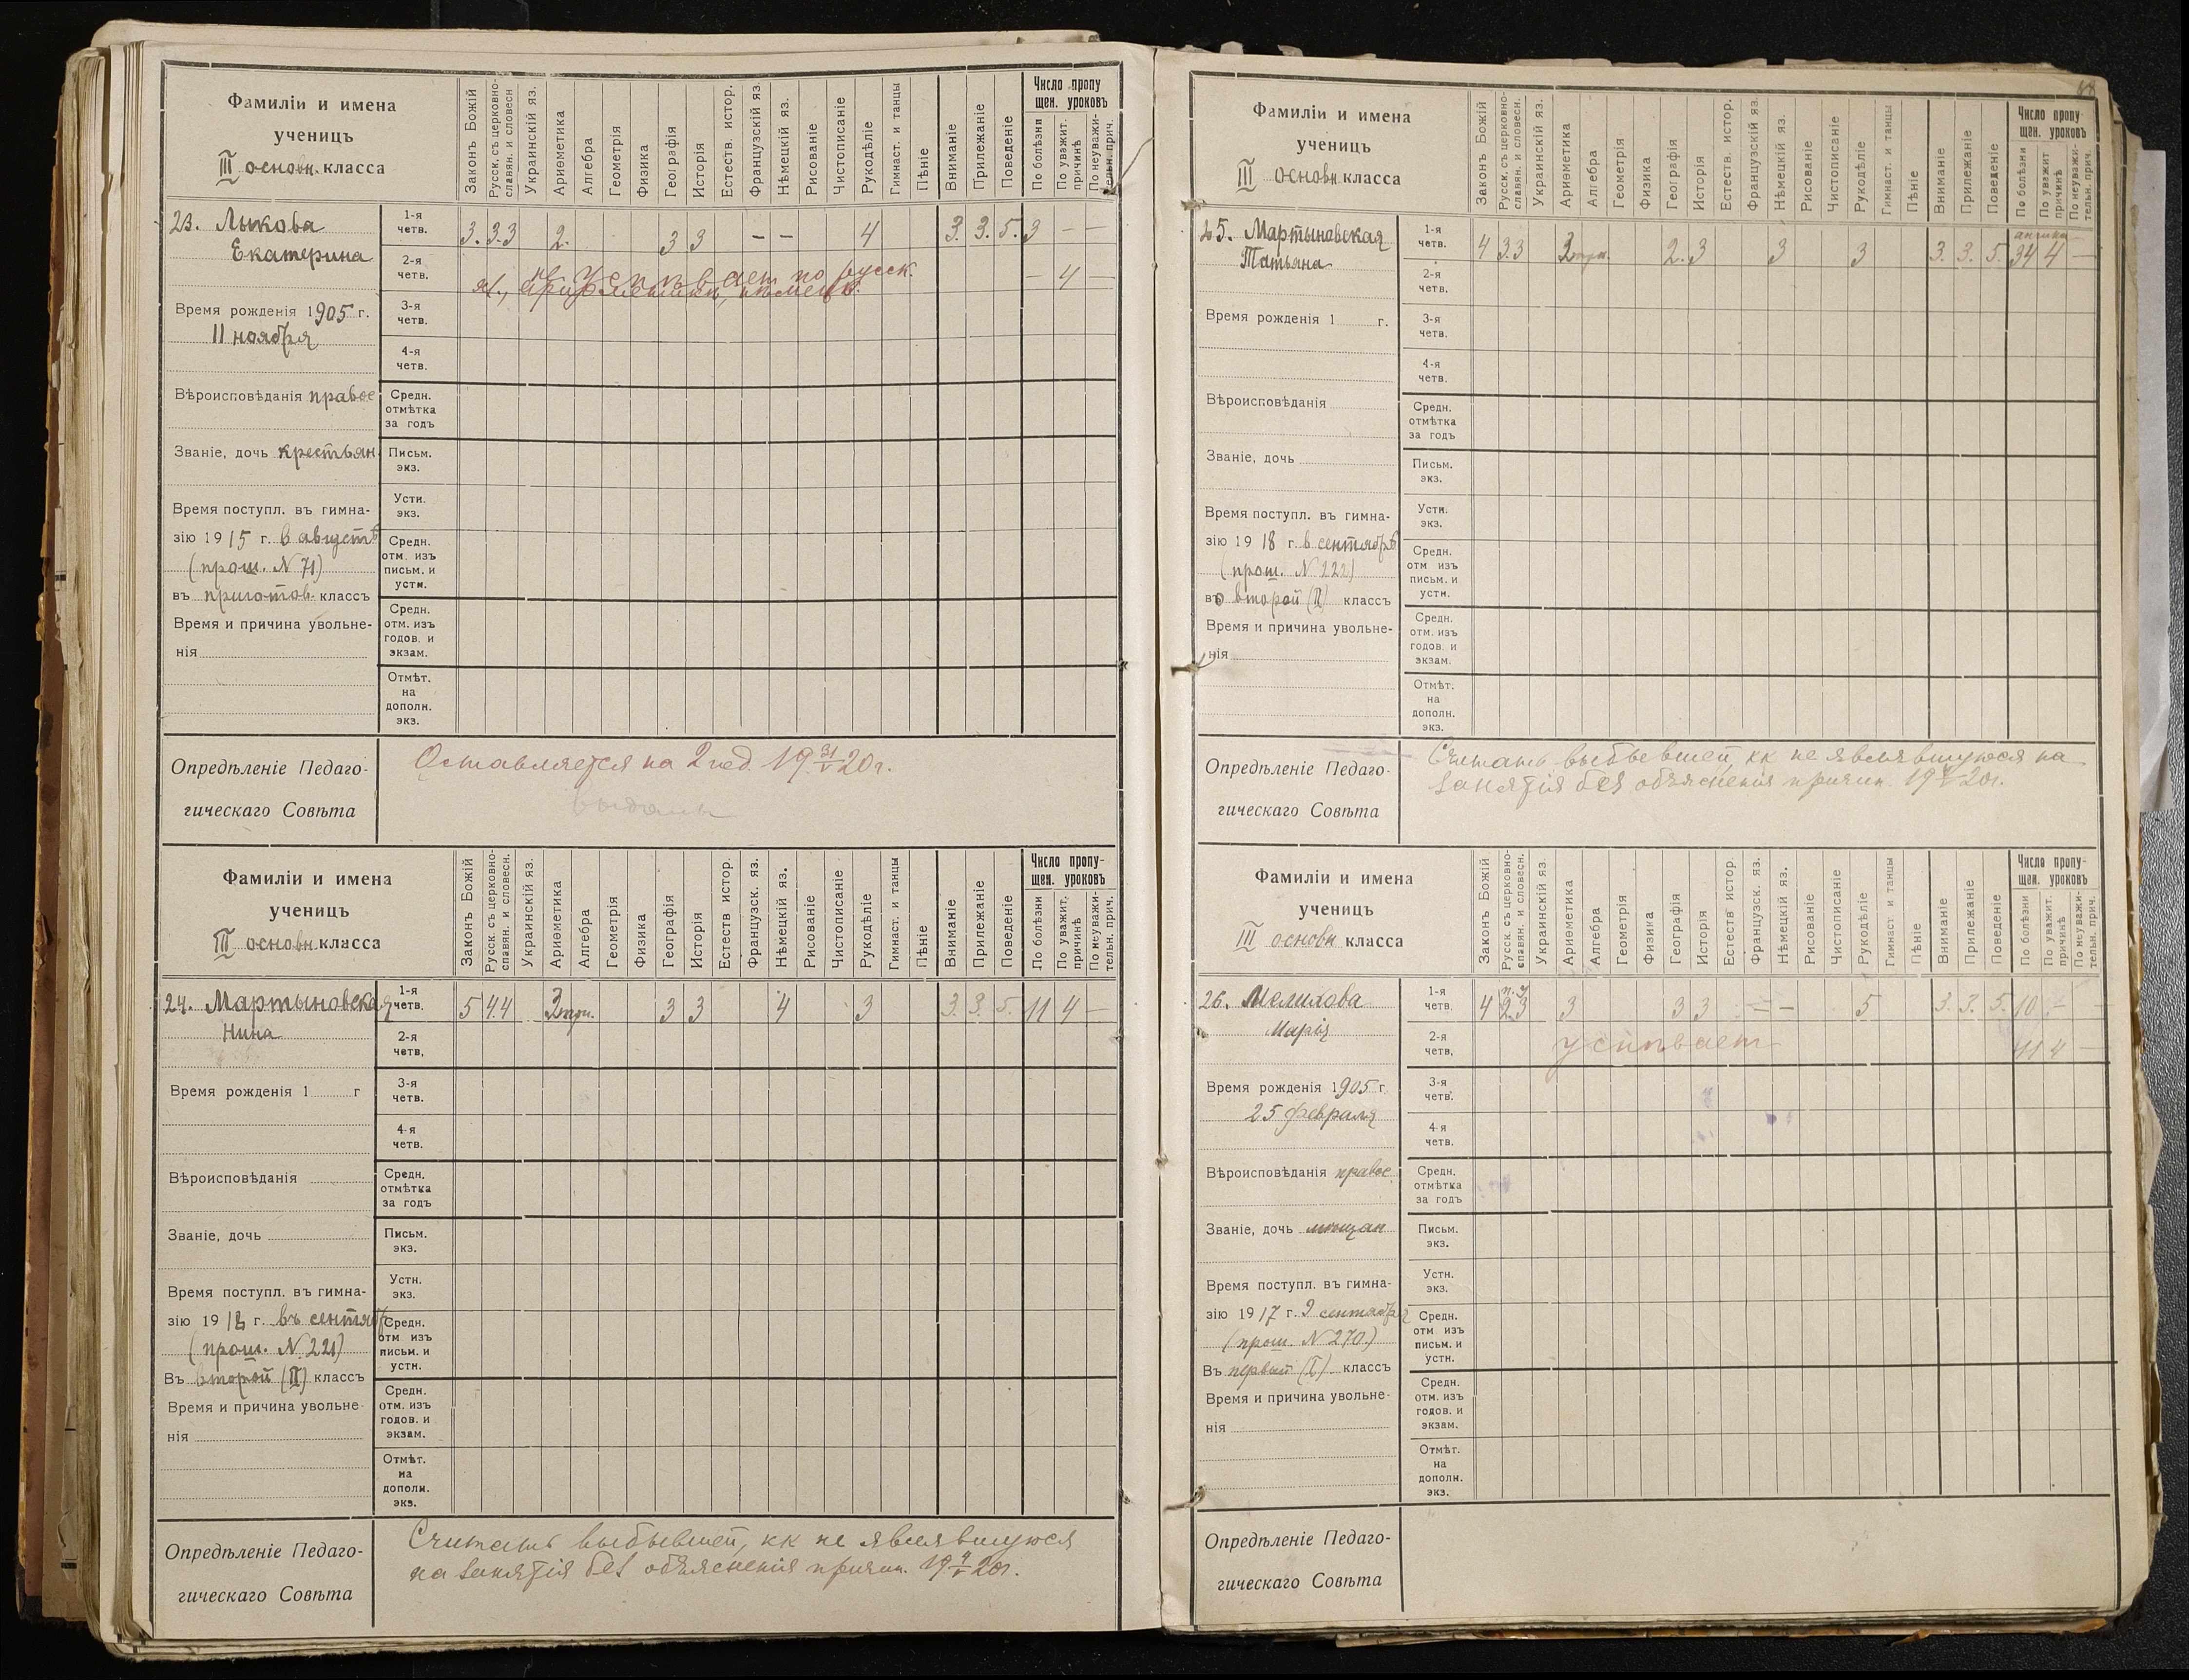 Фамиліи и имена
ученицъ
III основн. класса
Законъ Божій
Русск. съ церковно-
славян. и словесн
Украинскій яз.
Ариѳметика
Алгебра
Геометрія
Физика
Географія
Исторія
Естеств. истор.
Французскій яз.
Нѣмецкій яз.
Рисованіе
Чистописаніе
Рукодѣліе
Гимнаст. и танцы
Пѣніе
Вниманіе
Прилежаніе
Поведеніе
Число пропу
щен. уроковъ
По болѣзни
По уважит.
причинѣ
По неуважи-
тельн. прич.
23. Лыкова
Екатерина
1-я
четв.
3. 3.3 2. 3 3 – – 4 3. 3. 5. 9 – –
2-я
четв.
не успѣвает по русск. – 4 –
яз., арифметикѣ, нѣмецк.
Время рожденія 1905 г.
11 ноября
3-я
четв.
4-я
четв.
Вѣроисповѣданія правос
Средн.
отмѣтка
за годъ
Званіе, дочь крестьян.
Письм.
экз.
Устн.
экз.
Время поступл. въ гимна-
зію 1915 г. в августѣ
(прош. N 71)
въ приготов. классъ
Средн.
отм. изъ
письм. и
устн.
Время и причина увольне-
нія
Средн.
отм. изъ
годов. и
экзам.
Отмѣт.
на
дополн.
экз.
Опредѣленіе Педаго-
гическаго Совѣта
Оставляется на 2 год. 19 31/V 20 г.
выданы
Фамиліи и имена
ученицъ
III основн. класса
Законъ Божій
Русск. съ церковно-
славян. и словесн.
Украинскій яз.
Ариѳметика
Алгебра
Геометрія
Физика
Географія
Исторія
Естеств истор.
Французск. яз.
Нѣмецкій яз.
Рисованіе
Чистописаніе
Рукодѣліе
Гимнаст. и танцы
Пѣніе
Вниманіе
Прилежаніе
Поведеніе
Число пропу-
щен. уроковъ
По болѣзни
По уважит.
причинѣ
По неуважи-
тельн. прич.
24. Мартыновская
Нина
1-я
четв.
5 4.4 3 3 3 4 3 3. 3. 5. 11 4 –
2-я
четв,
Время рожденія 1 г
3-я
четв.
4-я
четв.
Вѣроисповѣданія
Средн.
отмѣтка
за годъ
Званіе, дочь
Письм.
экз.
Устн.
экз.
Время поступл. въ гимна-
зію 1918 г. въ сентяб
(прош. N 221)
Въ второй (II) классъ
Средн.
отм изъ
письм. и
устн.
Время и причина увольне-
нія
Средн.
отм. изъ
годов. и
экзам.
Отмѣт.
на
дополн.
экз.
Опредѣленіе Педаго-
гическаго Совѣта
Считать выбывшей, кк не являвшуюся
на занятія без объясненія причин. 19 4/V 20 г.
Фамиліи и имена
ученицъ
III основн класса
Законъ Божій
Русск. съ церковно-
славян. и словесн.
Украинскій яз.
Ариѳметика
Алгебра
Геометрія
Физика
Географія
Исторія
Естеств. истор.
Французскій яз.
Нѣмецкій яз.
Рисованіе
Чистописаніе
Рукодѣліе
Гимнаст. и танцы
Пѣніе
Вниманіе
Прилежаніе
Поведеніе
Число пропу
щен. уроковъ
По болѣзни
По уважит
причинѣ
По неуважи-
тельн. прич.
25. Мартыновская
Татьяна
1-я
четв.
4 3.3 2. 3 3 3 3. 3. 5. 34 4 –
2-я
четв.
Время рожденія 1 г.
3-я
четв.
4-я
четв.
Вѣроисповѣданія
Средн.
отмѣтка
за годъ
Званіе, дочь
Письм.
экз.
Устн.
экз.
Время поступл. въ гимна-
зію 1918 г. в сентябрѣ
(прош. N 222)
во второй (II) классъ
Средн.
отм изъ
письм. и
устн.
Время и причина увольне-
нія
Средн.
отм. изъ
годов. и
экзам.
Отмѣт.
на
дополн.
экз.
Опредѣленіе Педаго-
гическаго Совѣта
Считать выбывшей, кк не являвшуюся на
занятія без объясненія причин. 19 4/V 20 г.
Фамиліи и имена
ученицъ
III основн класса
Законъ Божій
Русск. съ церковно-
славян. и словесн.
Украинскій яз
Ариѳметика
Алгебра
Геометрія
Физика
Географія
Исторія
Естеств истор
Французск. яз.
Нѣмецкій яз.
Рисованіе
Чистописаніе
Рукодѣліе
Гимнаст и танцы
Пѣніе
Вниманіе
Прилежаніе
Поведеніе
Число пропу-
щен. уроковъ
По болѣзни
По уважит.
причинѣ
По неуважи-
тельн. прич.
26. Мелихова
Марія
1-я
четв.
4 2.3 3 3 3 – – 5 3. 3. 5. 10 – –
2-я
четв,
успѣвает 41 4 –
Время рожденія 1905 г
25 февраля
3-я
четв.
4-я
четв.
Вѣроисповѣданія правос
Средн.
отмѣтка
за годъ
Званіе, дочь мѣщан
Письм.
экз.
Устн.
экз.
Время поступл. въ гимна-
зію 1917 г. 2 сентября
(прош. N 270.)
Въ первый (I) классъ
Средн.
отм изъ
письм. и
устн.
Время и причина увольне-
нія
Средн.
отм. изъ
годов. и
экзам.
Отмѣт.
на
дополн.
экз.
Опредѣленіе Педаго-
гическаго Совѣта